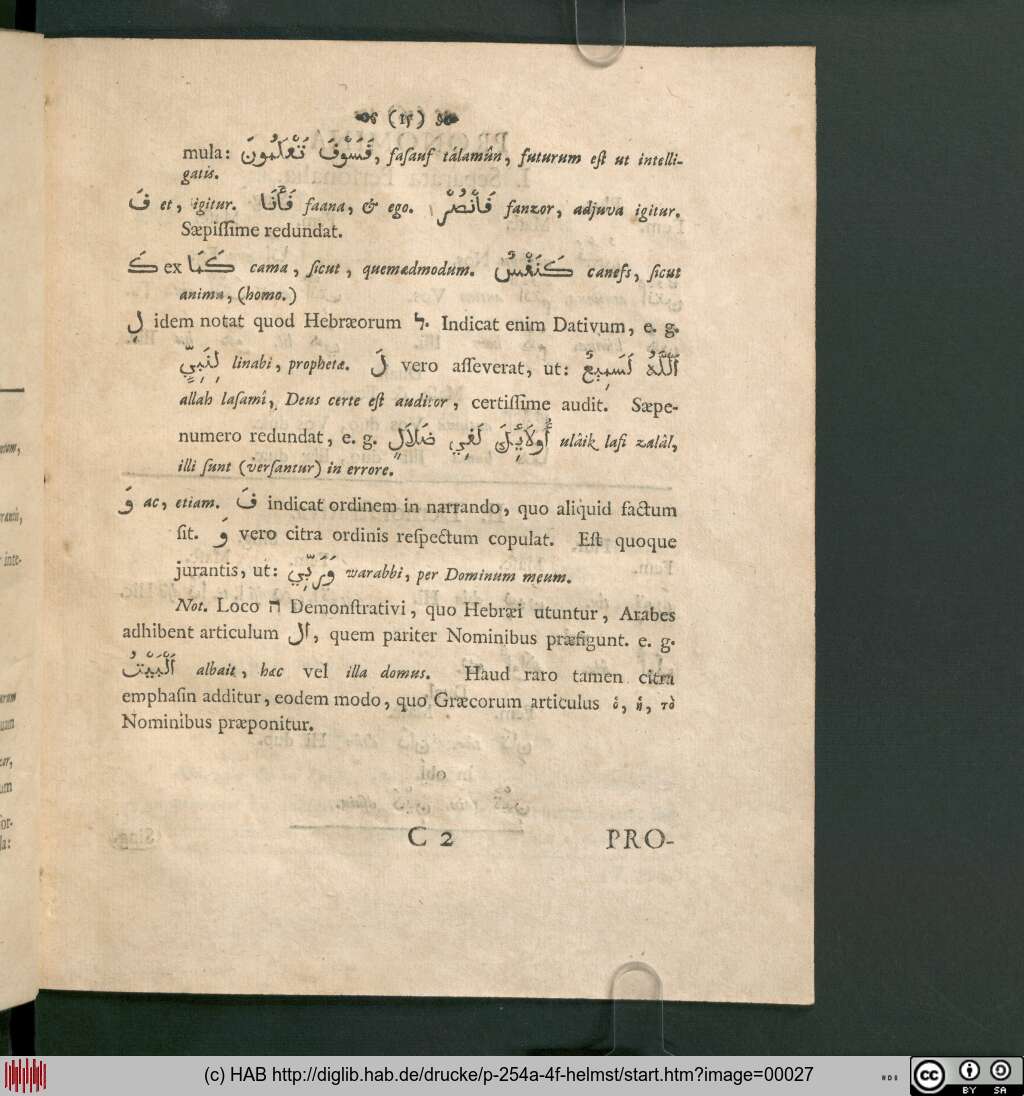 (15)
mula: فَسَوْفَ تَعْلَمُونَ, faſauf tálamûn, futurum eſt ut intelli-
gatis.
فَ et, igitur. فَأَنَا faana, & ego. فَأَنْصُرْ fanzor, adjuva igitur.
Sæpiſſime redundat.
كَ ex كَمَا cama, ſicut, quemadmodum. كَنَفْسٌ canefs, ſicut
anima, (homo.)
لِ idem notat quod Hebræorum ל. Indicat enim Dativum, e. g.
لِنَبِيٍّ linabi, prophetæ. لَ vero aſſeverat, ut: اَللّٰهُ لَسَمِيعٌ
allah laſamî, Deus certe eſt auditor, certiſſime audit. Sæpe-
numero redundat, e. g. أُولَائِكَ لَفِي ضَلَالٍ ulâik lafi zalâl,
illi ſunt (verſantur) in errore.
وَ ac, etiam. فَ indicat ordinem in narrando, quo aliquid factum
ſit. وَ vero citra ordinis reſpectum copulat. Eſt quoque
jurantis, ut: وَرَبِّي warabbi, per Dominum meum.
Not. Loco ה Demonſtrativi, quo Hebræi utuntur, Arabes
adhibent articulum ال, quem pariter Nominibus præfigunt. e. g.
اَلْبَيْتُ albait, hæc vel illa domus. Haud raro tamen citra
emphaſin additur, eodem modo, quo Græcorum articulus ὁ, ἡ, τὸ
Nominibus præponitur.
C 2 PRO-
(c) HAB http://diglib.hab.de/drucke/p-254a-4f-helmst/start.htm?image=00027